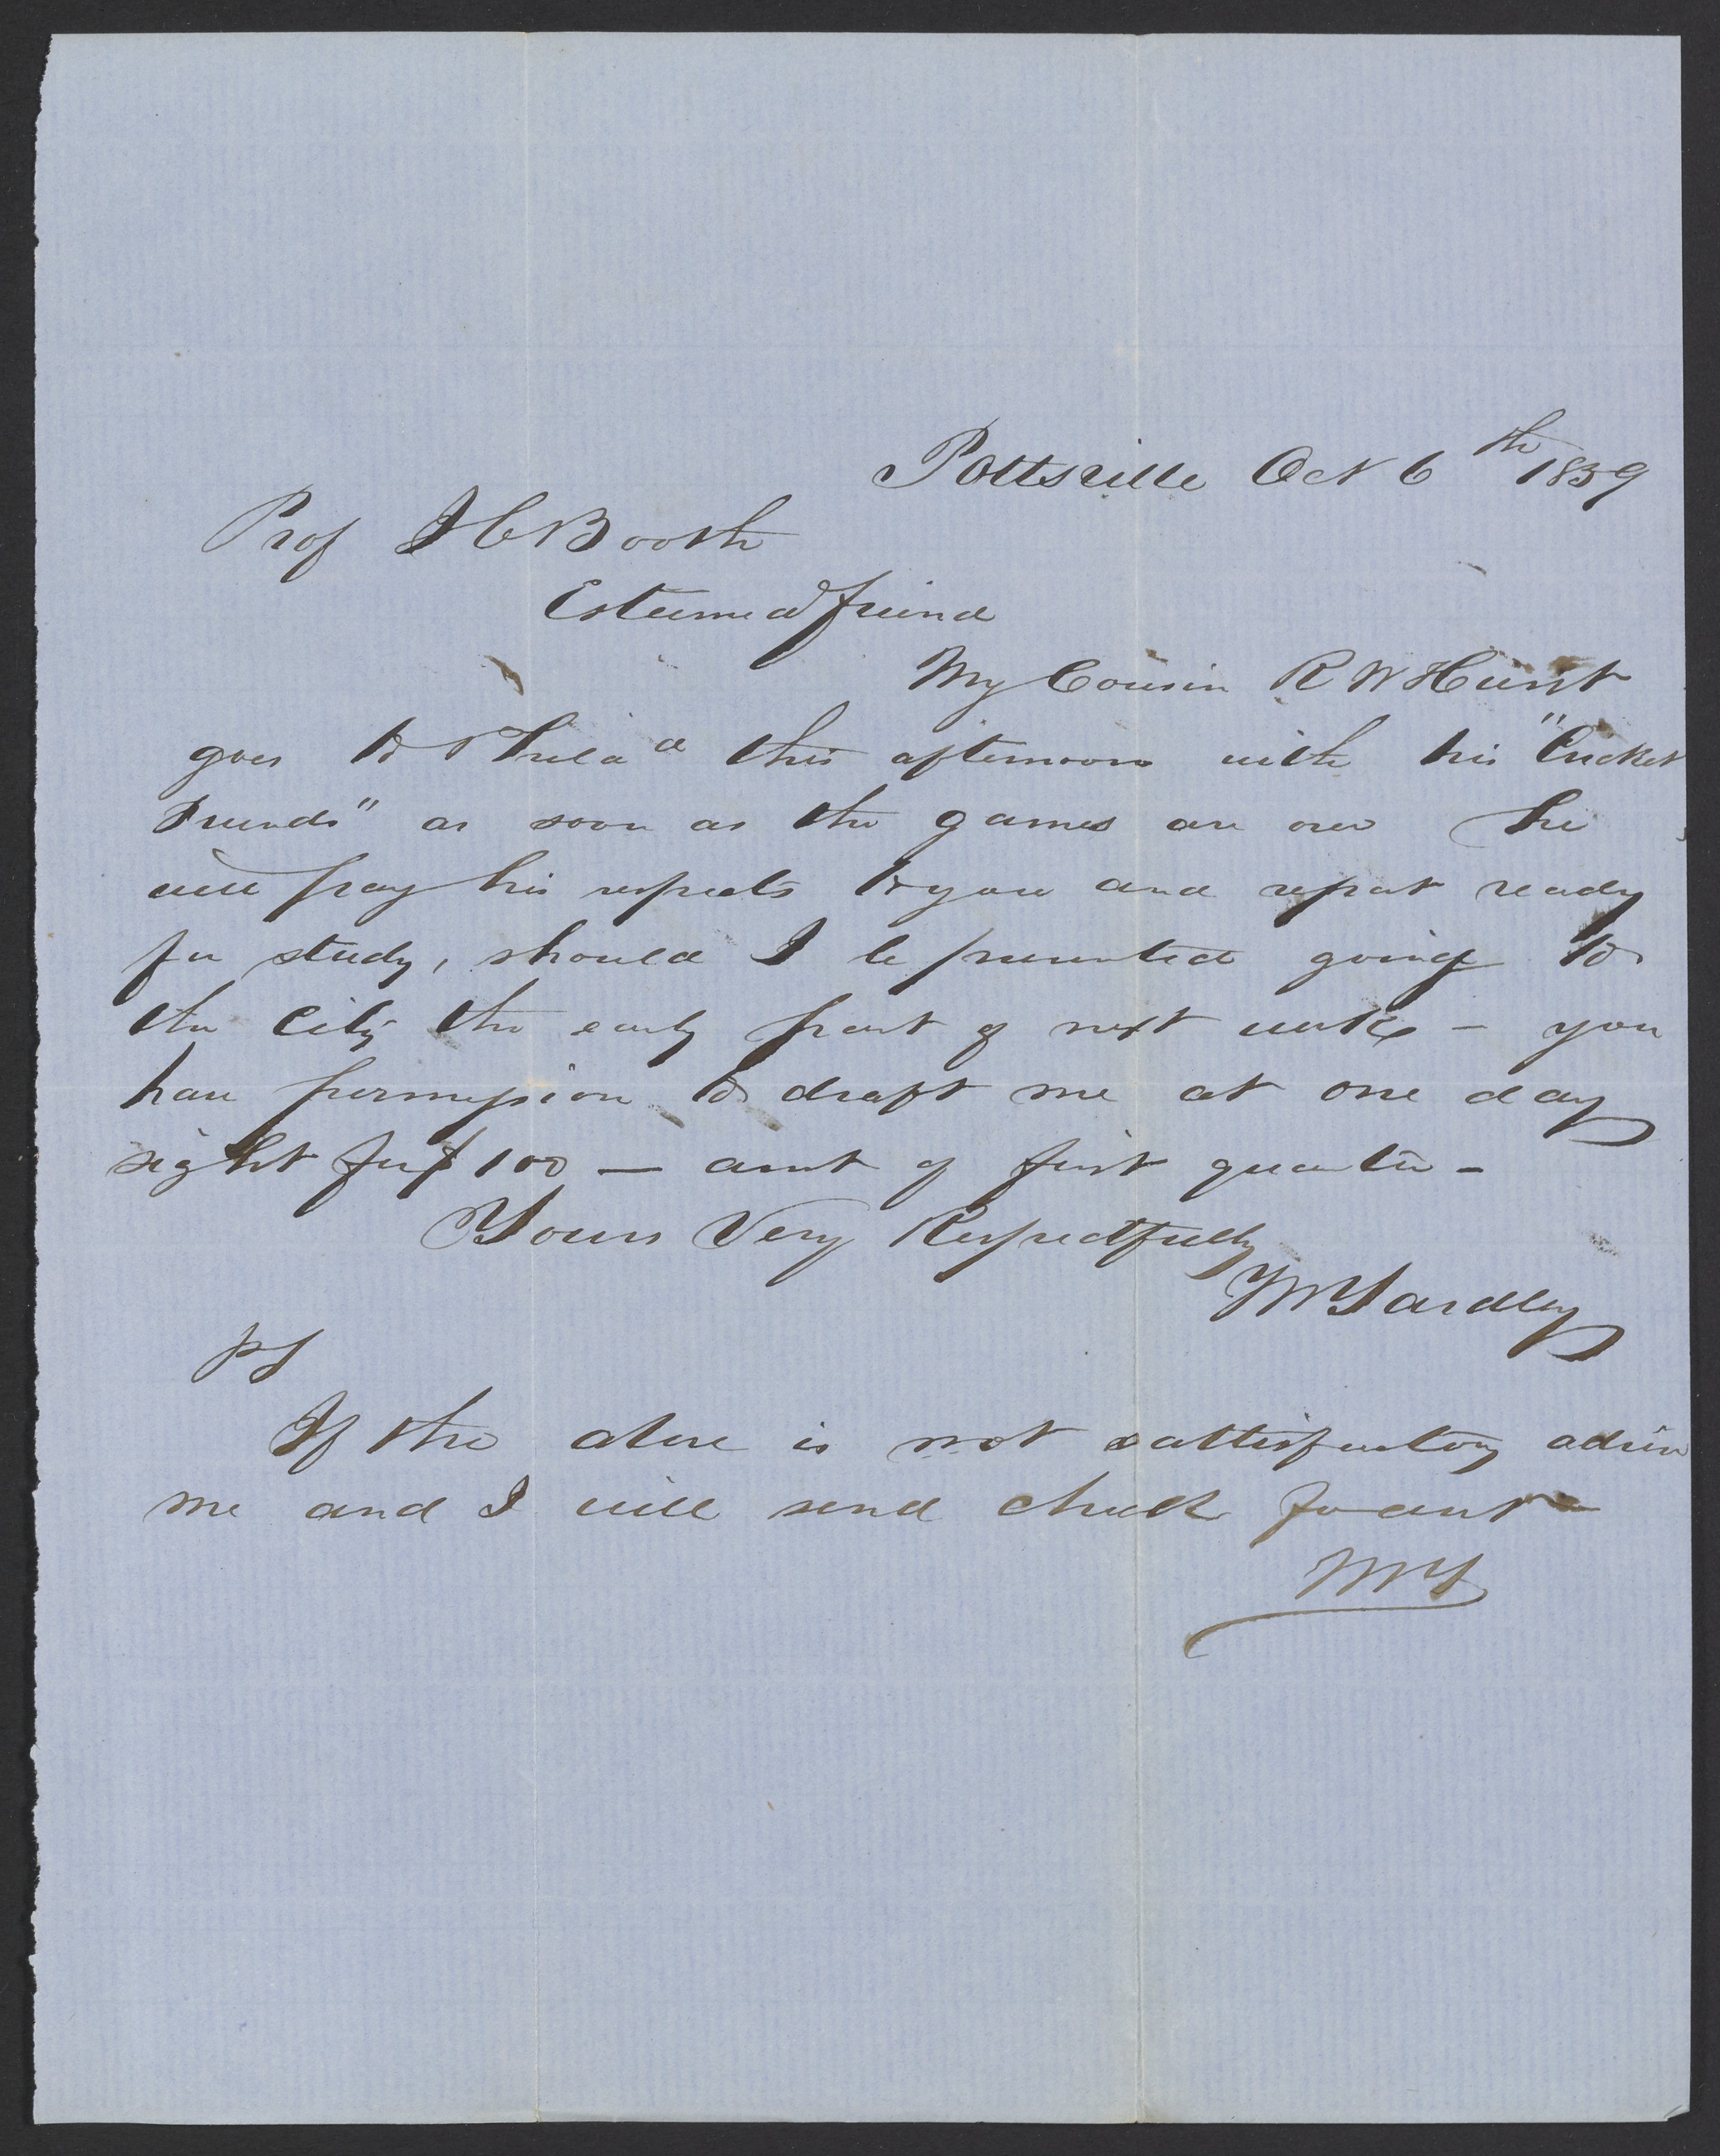 Pottsville Oct 6th 1859
Prof J C Booth
Esteemed friend
My Cousin R W Hunt
goes to Philada this afternoon with his "Cricket
Friends" as soon as the games are over he
will pay his respects to you and report ready
for study, should I be prevented going to
the City the early part of next week – you
have permission to draft me at one day
sight for $100 — amt of first quarter –
Yours Very Respectfully
Yardley
PS
If the above is not sattisfactory advise
me and I will send check for amt –